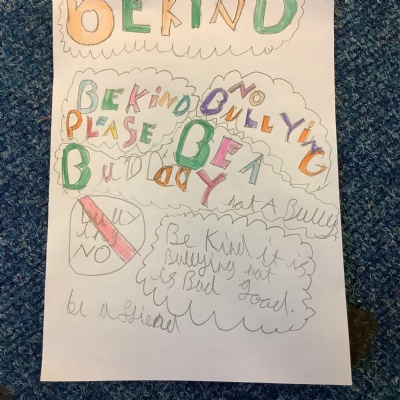 BEKIND
BEKIND
PLEASE
NO
BULLYING
BE A
BuDDY not A Bully
Bully
ing
NO
Be Kind it is
Bullying not
is Bad good.
be a friend